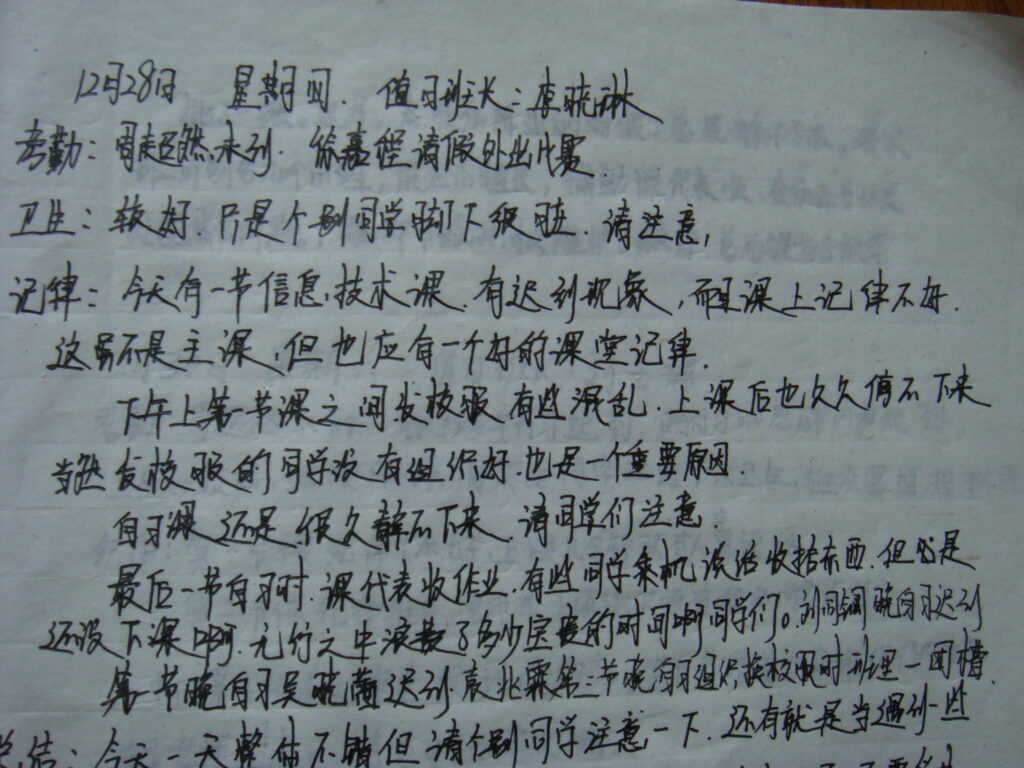 12月28日 星期四. 值日班长: 李晓琳
考勤: 周超然未到. 徐嘉程请假外出比赛.
卫生: 较好. 只是个别同学脚下很脏. 请注意,
记律: 今天有一节信息技术课. 有迟到现象, 而且课上记律不好.
这虽不是主课, 但也应有一个好的课堂记律.
下午上第一节课之间发校服有些混乱. 上课后也久久停不下来
当然发校服的同学没有组织好. 也是一个重要原因.
自习课还是很久静不下来. 请同学们注意.
最后一节自习时. 课代表收作业. 有些同学乘机说话收拾东西. 但是
还没下课啊. 无行之中浪费了多少宝贵的时间啊同学们。刘同钢晚自习迟到
第一节晚自习吴晓茵迟到. 袁兆霖第二节晚自习组织换校服时班里一团糟.
总结: 今天一天整体不错但请个别同学注意一下. 还有就是当遇到一些